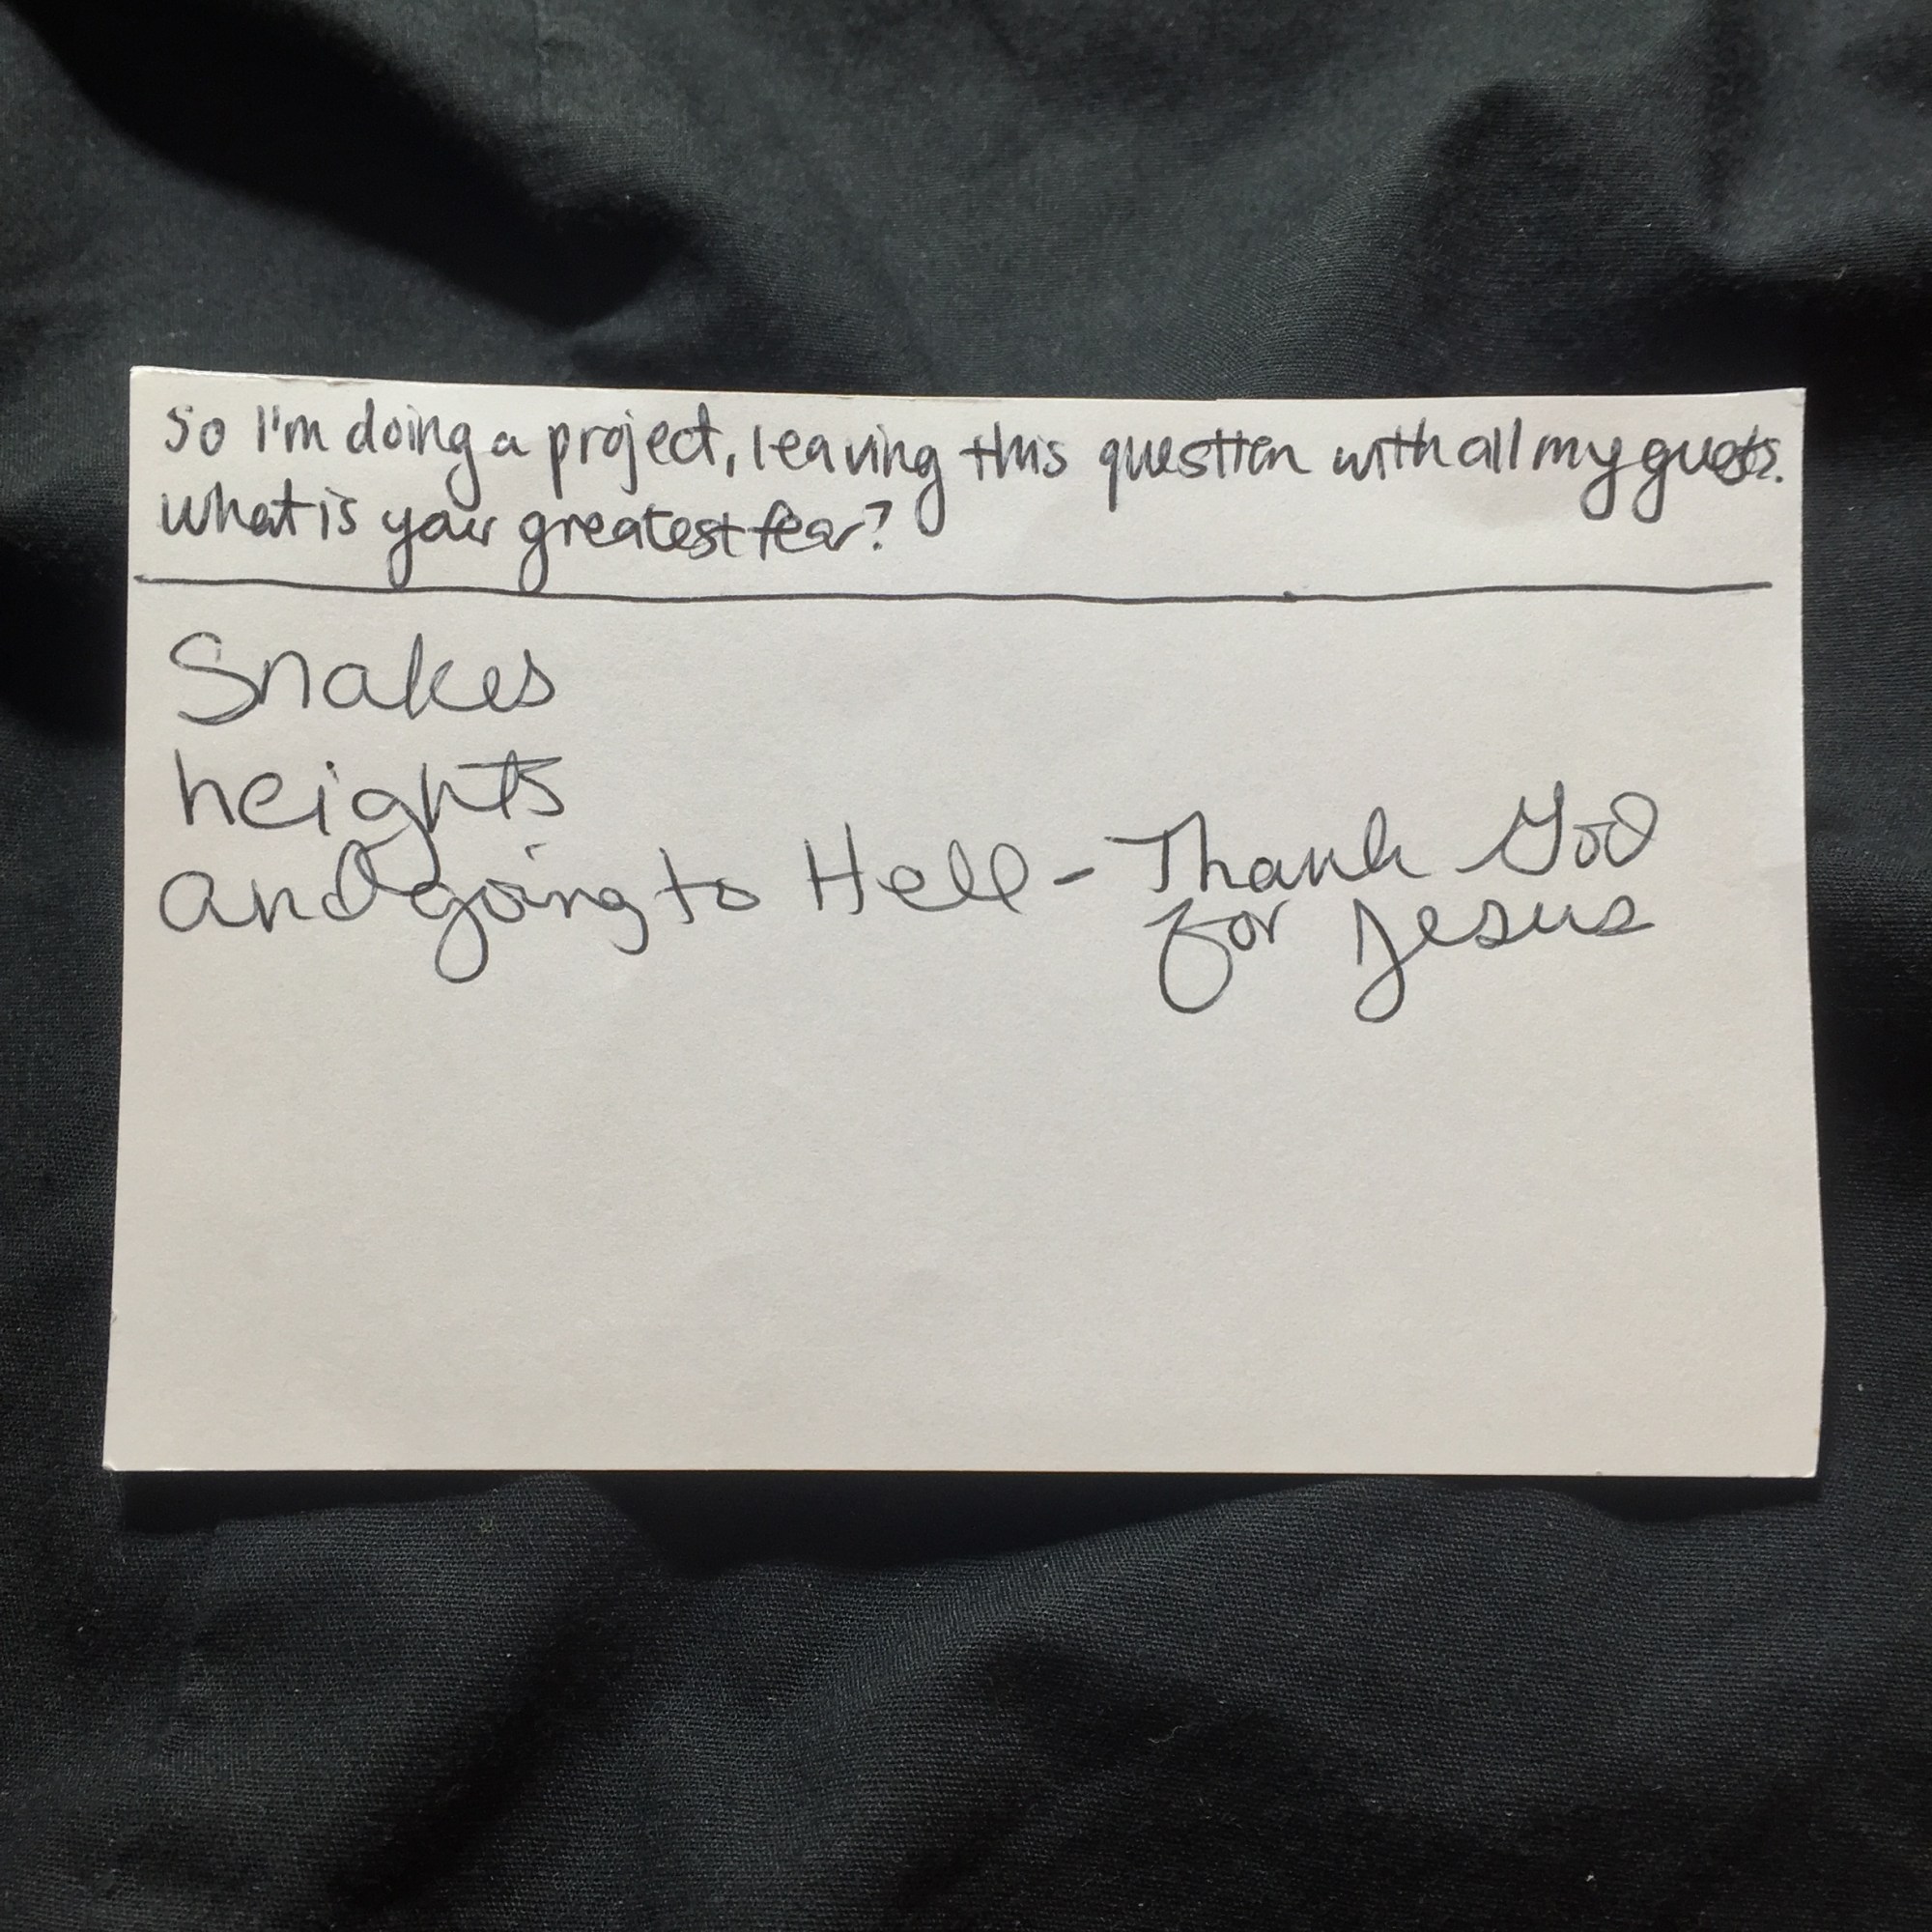 So I'm doing a project, leaving this question with all my guests.
What is your greatest fear?
Snakes
heights
and going to Hell - Thank God
for Jesus